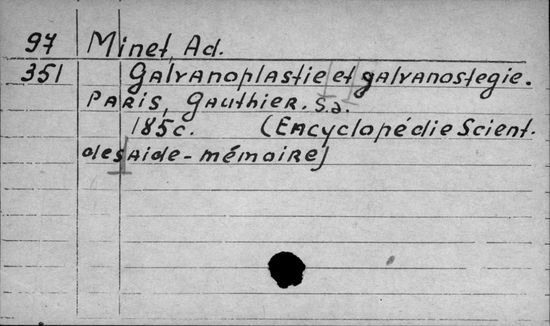 97 Minet, Ad.
351 Galvanoplastie et galvanostegie.
Paris, Gauthier. s.a.
185c. (Encyclopédie Scient.
des Aide-mémoire)